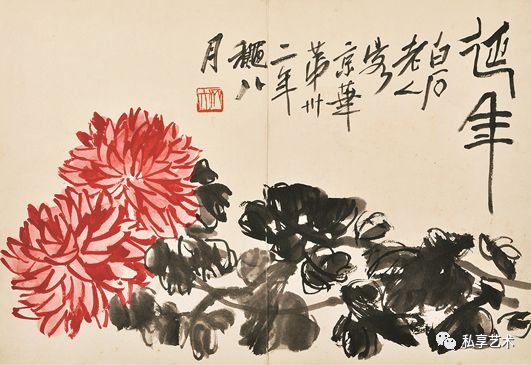 延年
白石
老人
客
京華
第卅
二年
龝八
月
私享艺术